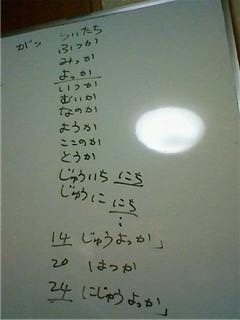 ついたち
ガン ふつか
みっか
よっか
いつか
むいか
なのか
ようか
ここのか
とうか
じゅういち にち
じゅうに にち
⋮
14 じゅうよっか」
20 はつか
24 にじゅうよっか」